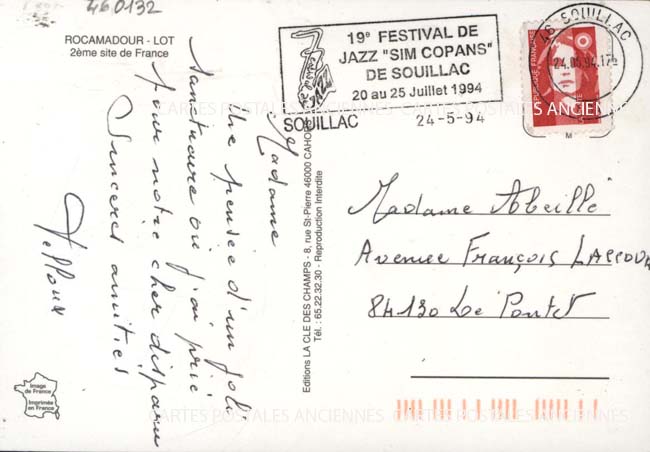 460132
ROCAMADOUR - LOT
2ème site de France
19e FESTIVAL DE
JAZZ "SIM COPANS"
DE SOUILLAC
20 au 25 Juillet 1994
SOUILLAC 24-5-94
46 SOUILLAC
24.05.94.17h
Madame
Une pensée d'un joli
sanctuaire où j'ai prié
pour notre cher disparu
Sincères amitiés
Editions LA CLE DES CHAMPS - 8, rue St-Pierre 46000 CAHORS
Tél. : 65.22.32.30 - Reproduction Interdite
M
Madame Abeille
Avenue François
84130 Le Pontet
Image
de France
Imprimée
en France
CARTES POSTALES ANCIENNES CARTES POSTALES ANCIENNES
CARTES POSTALES ANCIENNES CARTES POSTALES ANCIENNES